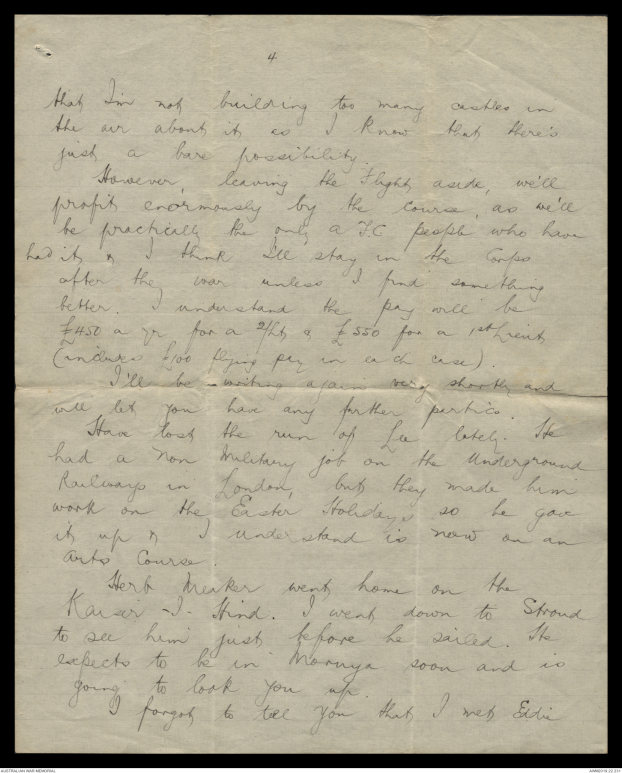 4
that I'm not building too many castles in
the air about it as I know that there's
just a bare possibility.
However, leaving the Flight aside, we'll
profit enormously by the course, as we'll
be practically the only A.F.C. people who have
had it & I think I'll stay in the Corps
after the war unless I find something
better. I understand the pay will be
£450 a yr for a 2/Lt & £550 for a 1st Lieut
(includes £100 flying pay in each case).
I'll be writing again very shortly and
will let you have any further partics.
Have lost the run of Lee lately. He
had a non Military job on the Underground
Railways in London, but they made him
work on the Easter Holidays so he gave
it up & I understand is now on an
Arts Course.
Herb Meaker went home on the
Kaiser-I-Hind. I went down to Stroud
to see him just before he sailed. He
expects to be in Moruya soon and is
going to look you up.
I forgot to tell you that I met Eddie
AUSTRALIAN WAR MEMORIAL